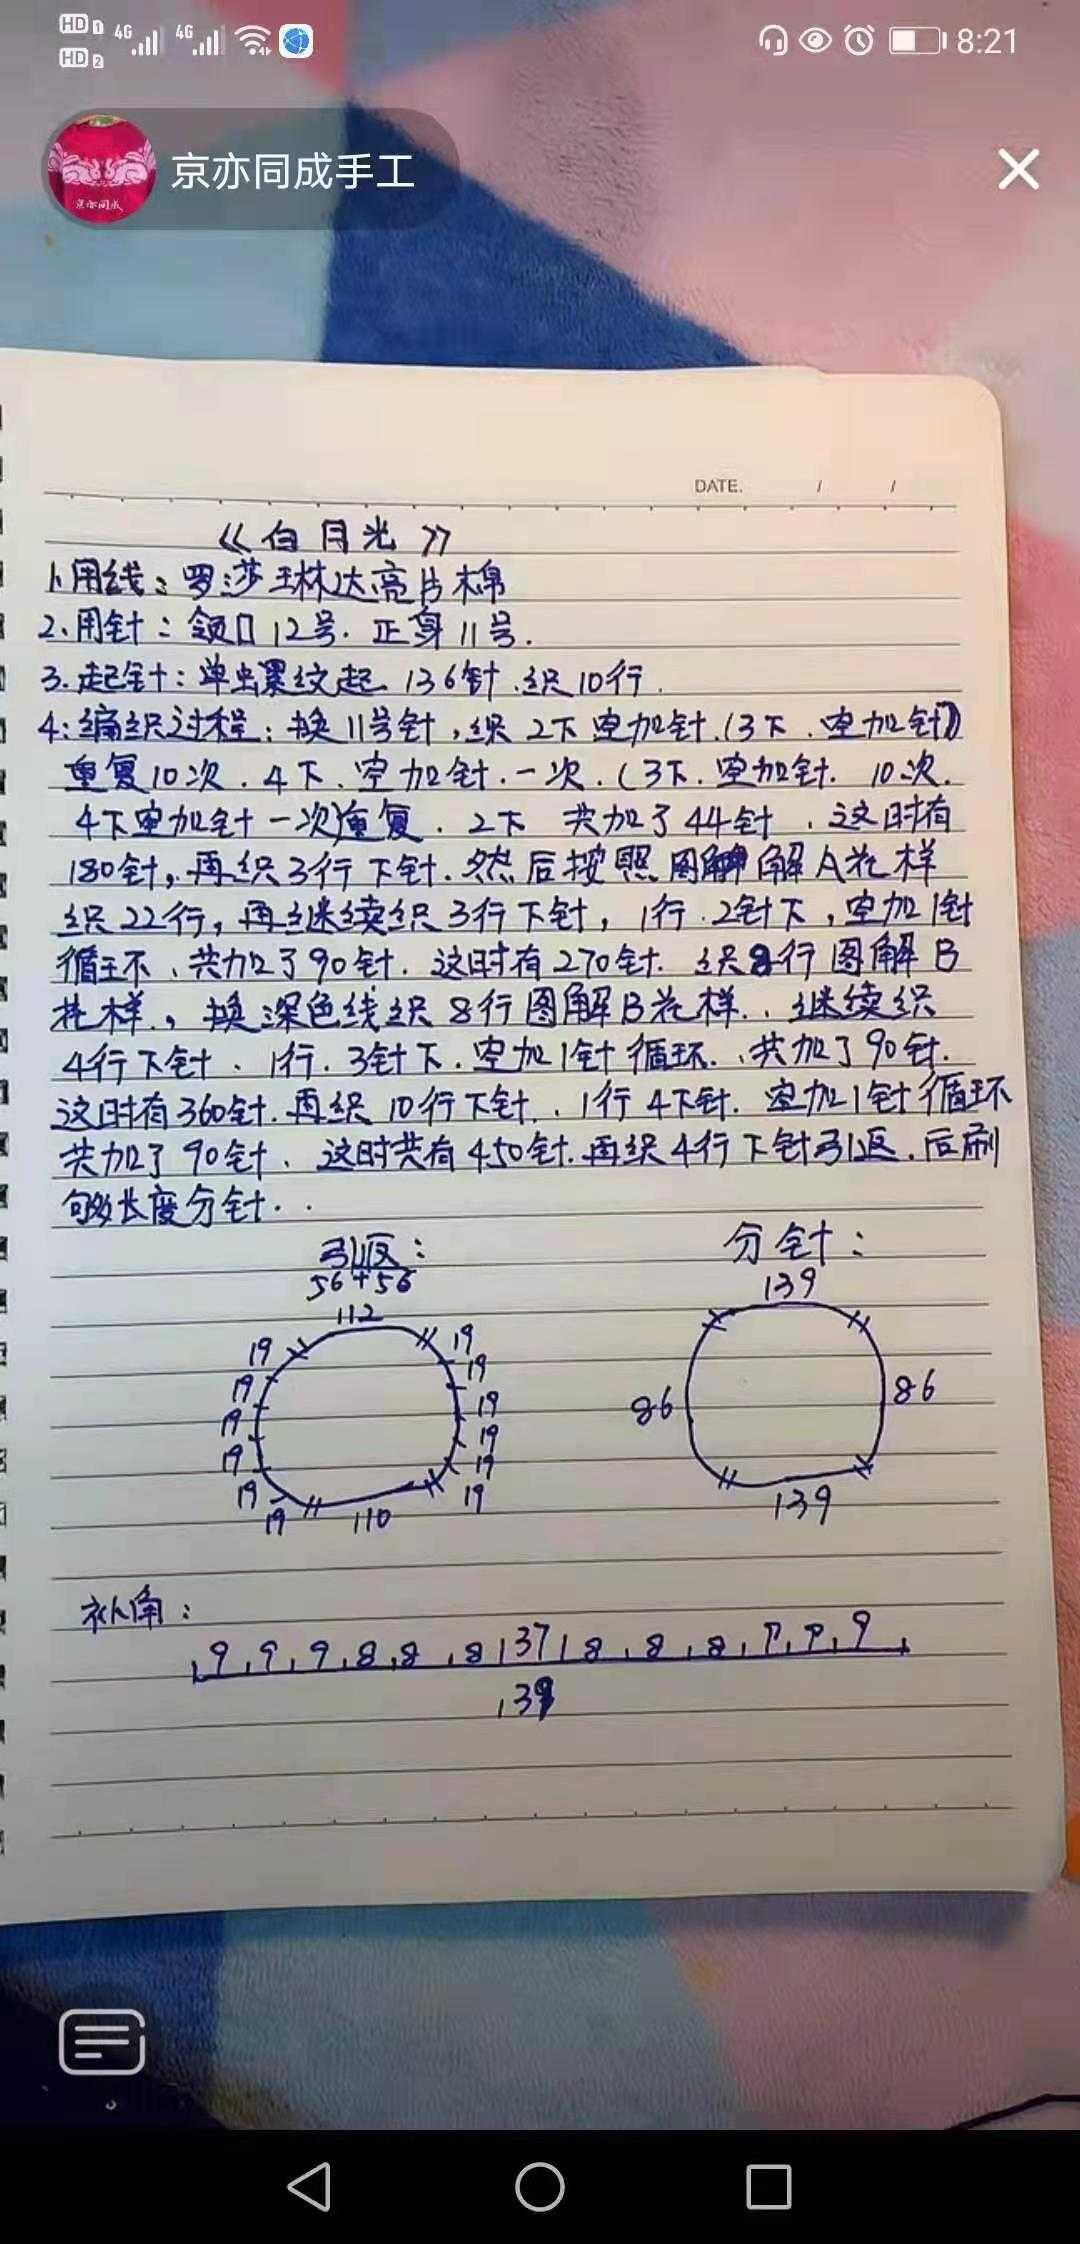 HD 1 4G 4G
HD 2
8:21
京亦同成手工
京亦同成
DATE. / /
《白月光》
1、用线：罗莎琳达亮片棉
2、用针：领口12号.正身11号.
3.起针：单虫累纹起 136针.织10行.
4:编织过程:换11号针,织2下空加针.(3下.空加针)
重复10次.4下.空加针.一次.(3下.空加针.10次.
4下空加针一次)重复.2下 共加了44针.这时有
180针,再织3行下针.然后按照图解A花样
织22行,再继续织3行下针,1行.2针下,空加1针
循环、共加了90针.这时有270针.织8行图解B
花样.,换深色线织8行图解B花样..继续织
4行下针、1行.3针下.空加1针循环.共加了90针.
这时有360针.再织10行下针.、1行4下针.空加1针循环
共加了90针、这时共有450针.再织4行下针引返.后刷
够长度分针..
引返： 分针：
56+56 139
112
19 19
19 19
19 19 86 86
19 19
19 19
19 19
110 139
补角：
9,9,9,8,8,8,37,8,8,8,9,9,9
139